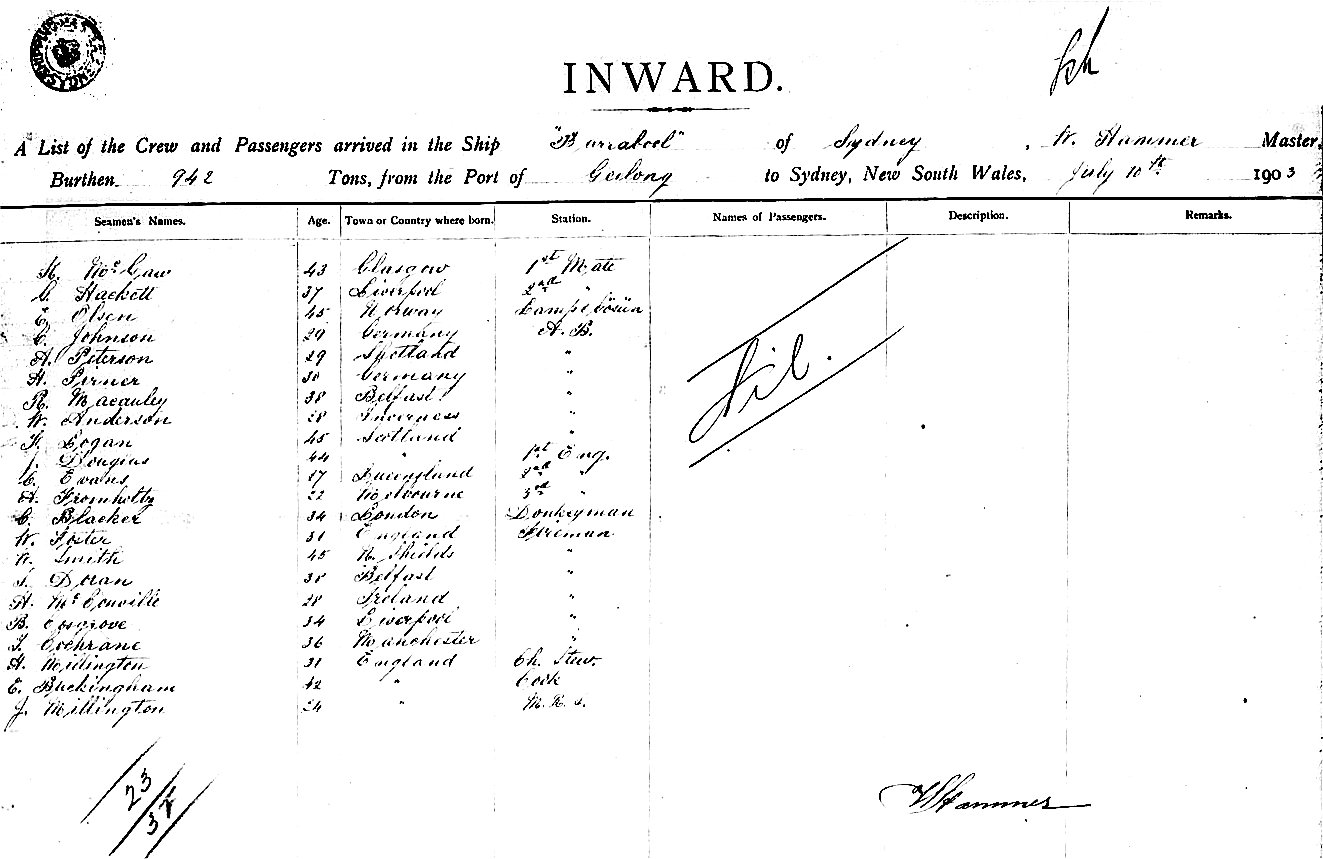 SHIPPING SYDNEY
INWARD.
A List of the Crew and Passengers arrived in the Ship "Barrabool" of Sydney, W. Hammer Master,
Burthen 942 Tons, from the Port of Geelong to Sydney, New South Wales, July 10th 1903
Seamen's Names. Age. Town or Country where born. Station. Names of Passengers. Description. Remarks.
K. McGaw 43 Glasgow 1st Mate
G. Hackett 37 Liverpool 2nd "
E. Olsen 45 Norway Lamps & Bosun
C. Johnson 29 Germany A. B.
A. Peterson 29 Shetland "
H. Pirner 30 Germany "
R. Macauley 38 Belfast "
W. Anderson 28 Inverness "
Logan 45 Scotland "
J. Douglas 44 " 1st Eng.
C. Evans 27 Queensland 2nd "
A. Fromholtz 22 Melbourne 3rd "
C. Blacker 34 London Donkeyman
W. Foster 31 England Fireman
Smith 45 N. Shields "
Doran 38 Belfast "
H. McConville 28 Ireland "
B. Cosgrove 34 Liverpool "
Cochrane 36 Manchester "
A. Millington 31 England Ch. Stew.
E. Buckingham 42 " Cook
J. Millington 24 " M. R. S.
Nil.
23
W Hammer